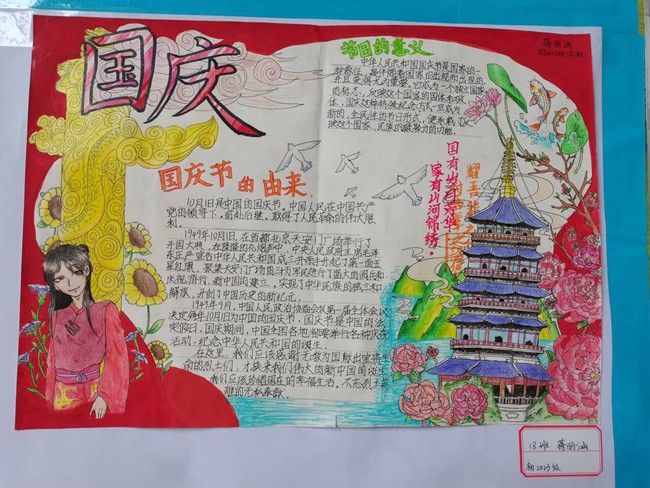 国庆
节国的意义
中华人民共和国国庆节是国家的一
种象征,是伴随着国家的出现而出现的,
并且变得尤为重要。它成为一个独立国家
的标志,反映这个国家的国体和政
体。国庆这种特殊纪念方式一旦成为
新的、全民性的节日形式,便承载了反
映这个国家、民族的凝聚力的功能。
国有山河
家有山河锦绣,
耀我
国庆节的由来
10月1日是中国的国庆节。中国人民在中国共产
党的领导下,前赴后继,取得了人民革命的伟大胜
利。
1949年10月1日,在首都北京天安门广场举行了
开国大典,在隆隆的礼炮声中,中央人民政府主席毛泽
东庄严宣布中华人民共和国成立并亲手升起了第一面五
星红旗。聚集天安门广场的三十万军民进行了盛大的阅兵和
庆祝游行。新中国的建立,实现了中华民族的独立和
解放,开创了中国历史的新纪元。
1949年9月,中国人民政治协商会议第一届全体会议
决定每年10月1日为中国的国庆节。国庆节是中国的法
定假日,国庆期间,中国全国各地都要举行各种庆祝
活动,纪念中华人民共和国的诞生。
在这里,我们应该感谢无数为国献出宝贵生
命的烈士们,才换来我们伟大的新中国的诞生
我们应该珍惜现在的幸福生活。不忘烈士英
雄的无私奉献
13班 蒋丽涵
初2023级